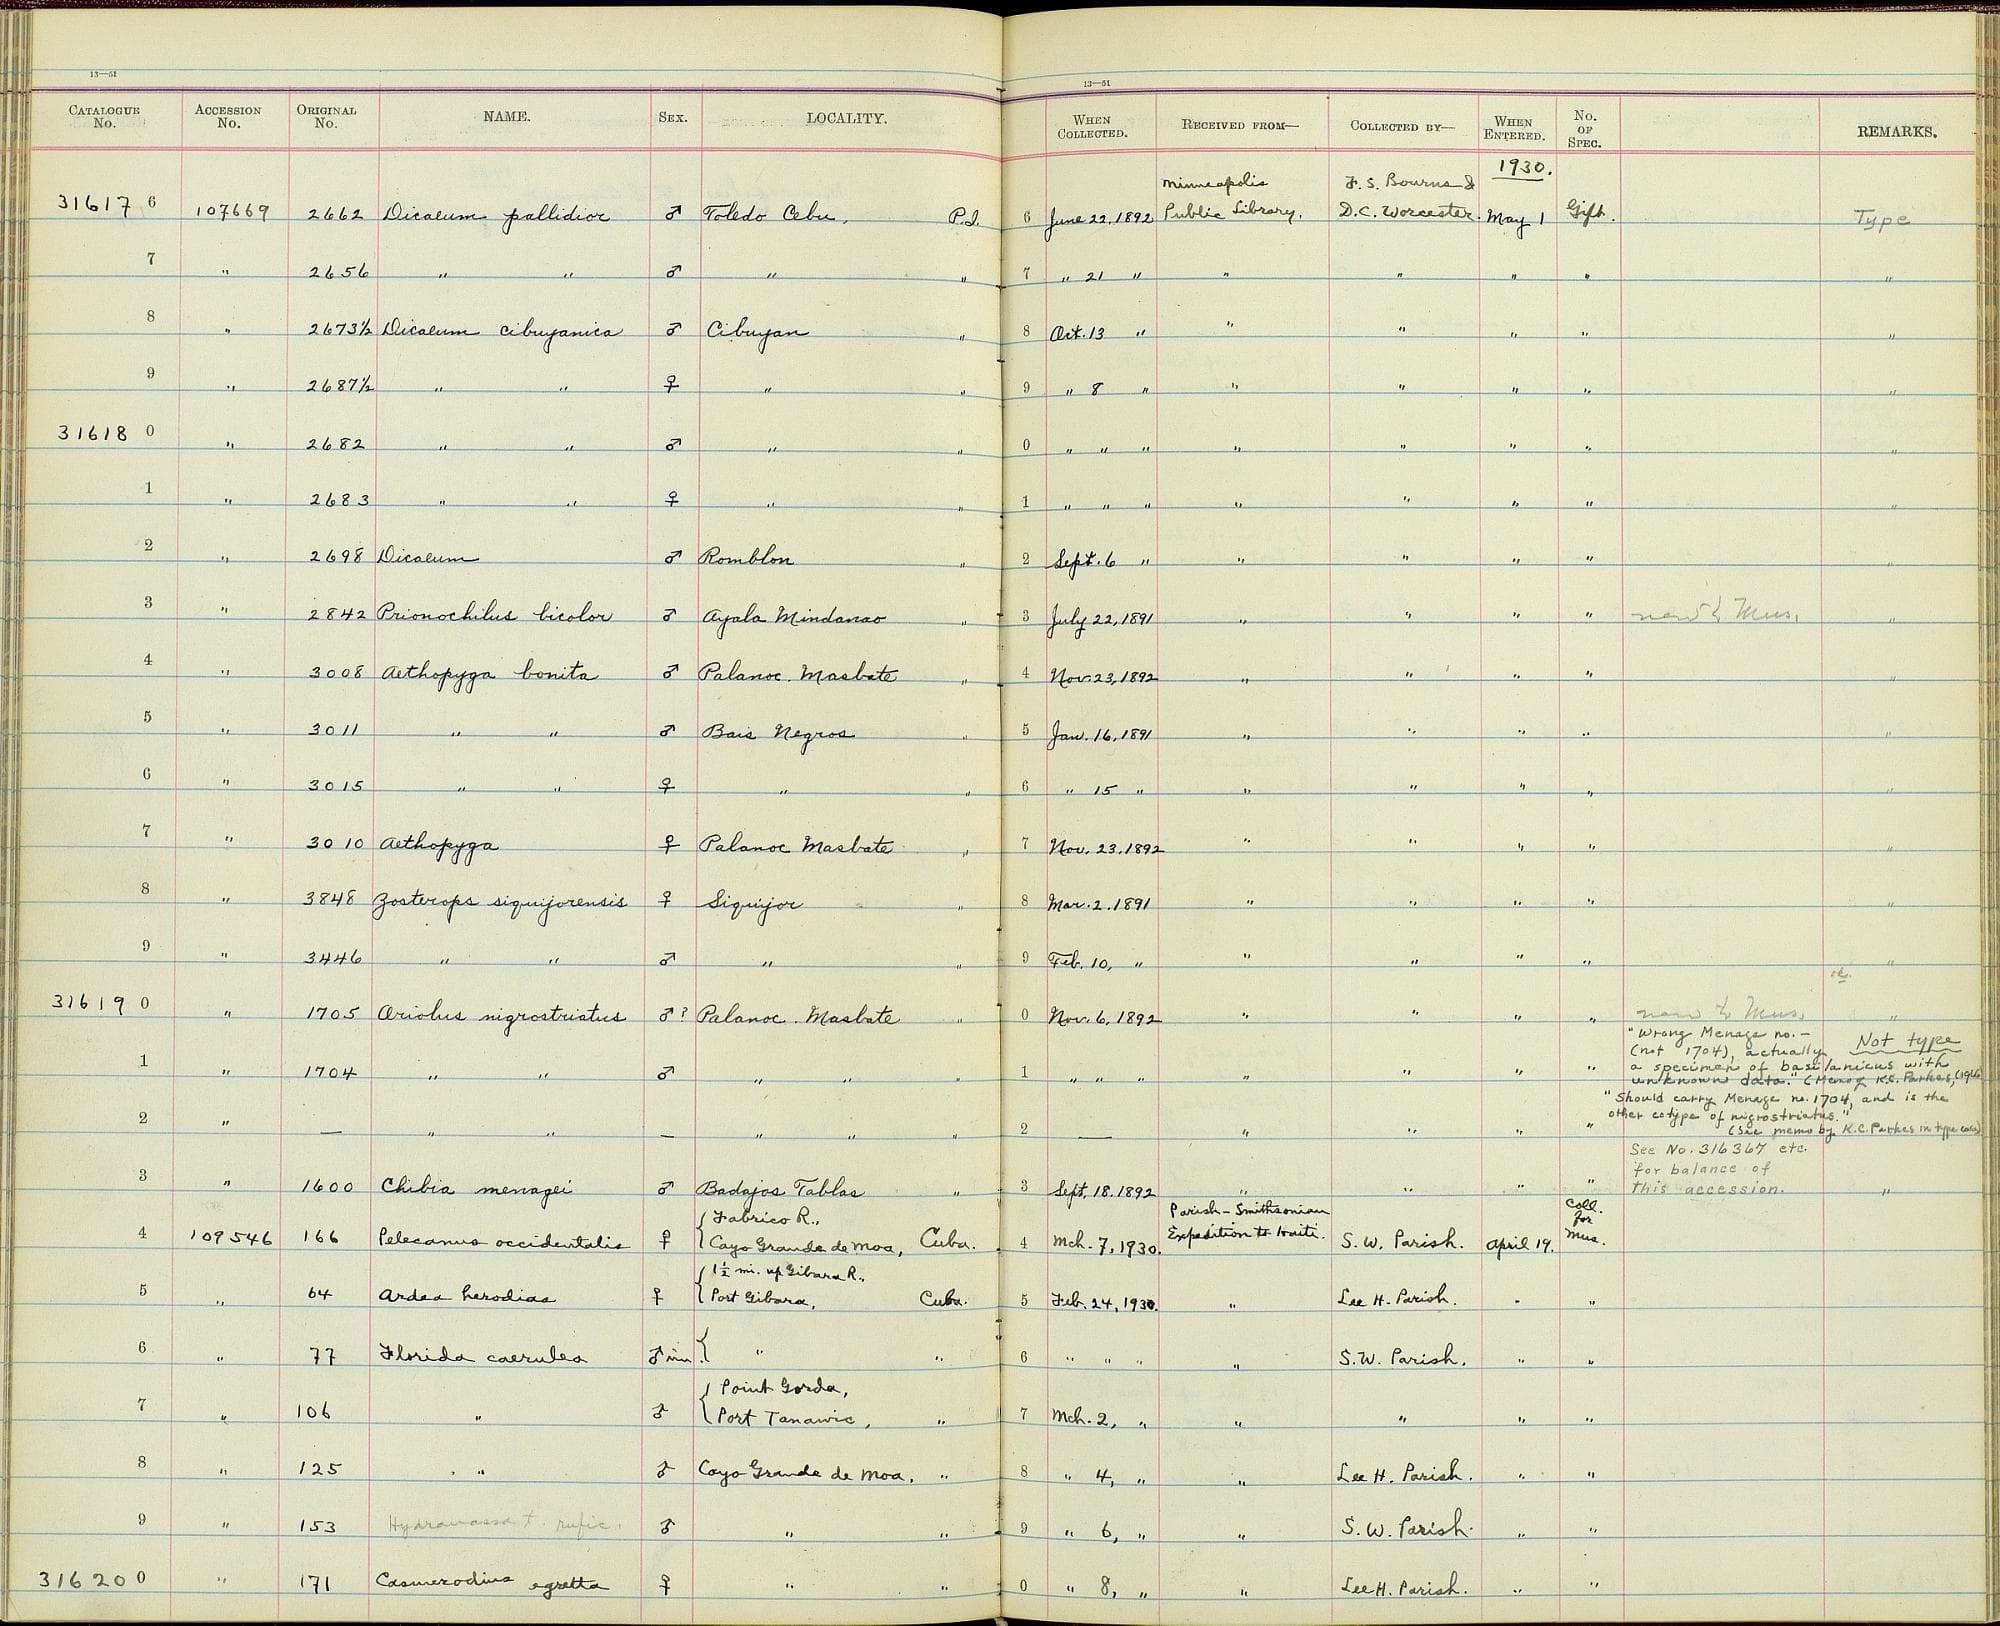 13—51
13—51
CATALOGUE No. ACCESSION No. ORIGINAL No. NAME. SEX. LOCALITY. WHEN COLLECTED. RECEIVED FROM— COLLECTED BY— WHEN ENTERED. No. OF SPEC. REMARKS.
1930.
Minneapolis F. S. Bourns &
31617 6 107669 2662 Dicaeum pallidior ♂ Toledo Cebu, P.I. 6 June 22, 1892 Public Library. D.C. Worcester. May 1 Gift. Type
7 " 2656 " " ♂ " " 7 " 21 " " " " " "
8 " 2673½ Dicaeum cibuyanica ♂ Cibuyan " 8 Oct. 13 " " " " " "
9 " 2687½ " " ♀ " " 9 " 8 " " " " " "
31618 0 " 2682 " " ♂ " " 0 " " " " " " " "
1 " 2683 " " ♀ " " 1 " " " " " " " "
2 " 2698 Dicaeum ♂ Romblon " 2 Sept. 6 " " " " " "
3 " 2842 Prionochilus bicolor ♂ Ayala Mindanao " 3 July 22, 1891 " " " " Mus. "
4 " 3008 Aethopyga bonita ♂ Palanoc. Masbate " 4 Nov. 23, 1892 " " " " "
5 " 3011 " " ♂ Bais Negros " 5 Jan. 16, 1891 " " " " "
6 " 3015 " " ♀ " " 6 " 15 " " " " " "
7 " 3010 Aethopyga ♀ Palanoc Masbate " 7 Nov. 23, 1892 " " " " "
8 " 3848 Zosterops siquijorensis ♀ Siquijor " 8 Mar. 2. 1891 " " " " "
9 " 3446 " " ♂ " " 9 Feb. 10, " " " " " "
31619 0 " 1705 Oriolus nigrostriatus ♂? Palanoc. Masbate " 0 Nov. 6, 1892 " " " " Mus. "
"Wrong Menage no. – Not type
(not 1704), actually
1 " 1704 " " ♂ " " 1 " " " " " " " a specimen of basilanicus with
unknown data." (Memo of K.C. Parkes,
"Should carry Menage no. 1704, and is the
other cotype of nigrostriatus."
2 " — " " — " " " 2 — " " " " (See memo by K.C. Parkes in type case)
See No. 316367 etc.
for balance of
3 " 1600 Chibia menagei ♂ Badajos Tablas " 3 Sept. 18. 1892 " " " " this accession. "
Fabrico R., Parish - Smithsonian Coll. for
4 109546 166 Pelecanus occidentalis ♀ Cayo Grande de Moa, Cuba. 4 Mch. 7, 1930. Expedition to Haiti. S. W. Parish. April 19. Mus.
1½ mi. up Gibara R.,
5 " 64 Ardea herodias ♀ Port Gibara, Cuba. 5 Feb. 24, 1930. " Lee H. Parish. " "
6 " 77 Florida caerulea ♂ im " " 6 " " " " S.W. Parish. " "
Point Gorda,
7 " 106 " ♂ Port Tanawic, " 7 Mch. 2, " " " " "
8 " 125 " " ♂ Cayo Grande de Moa, " 8 " 4, " " Lee H. Parish. " "
9 " 153 Hydranassa t. rufic. ♂ " " 9 " 6, " " S. W. Parish. " "
31620 0 " 171 Casmerodius egretta ♀ " " 0 " 8, " " Lee H. Parish. " "